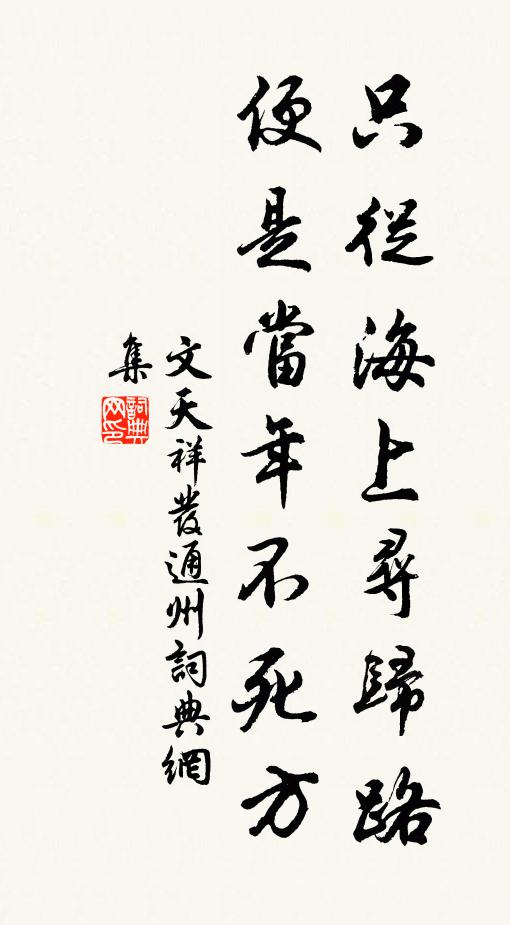 只從海上尋歸路
便是當年不死方
文天祥發通州詞典網
集
詞典網印